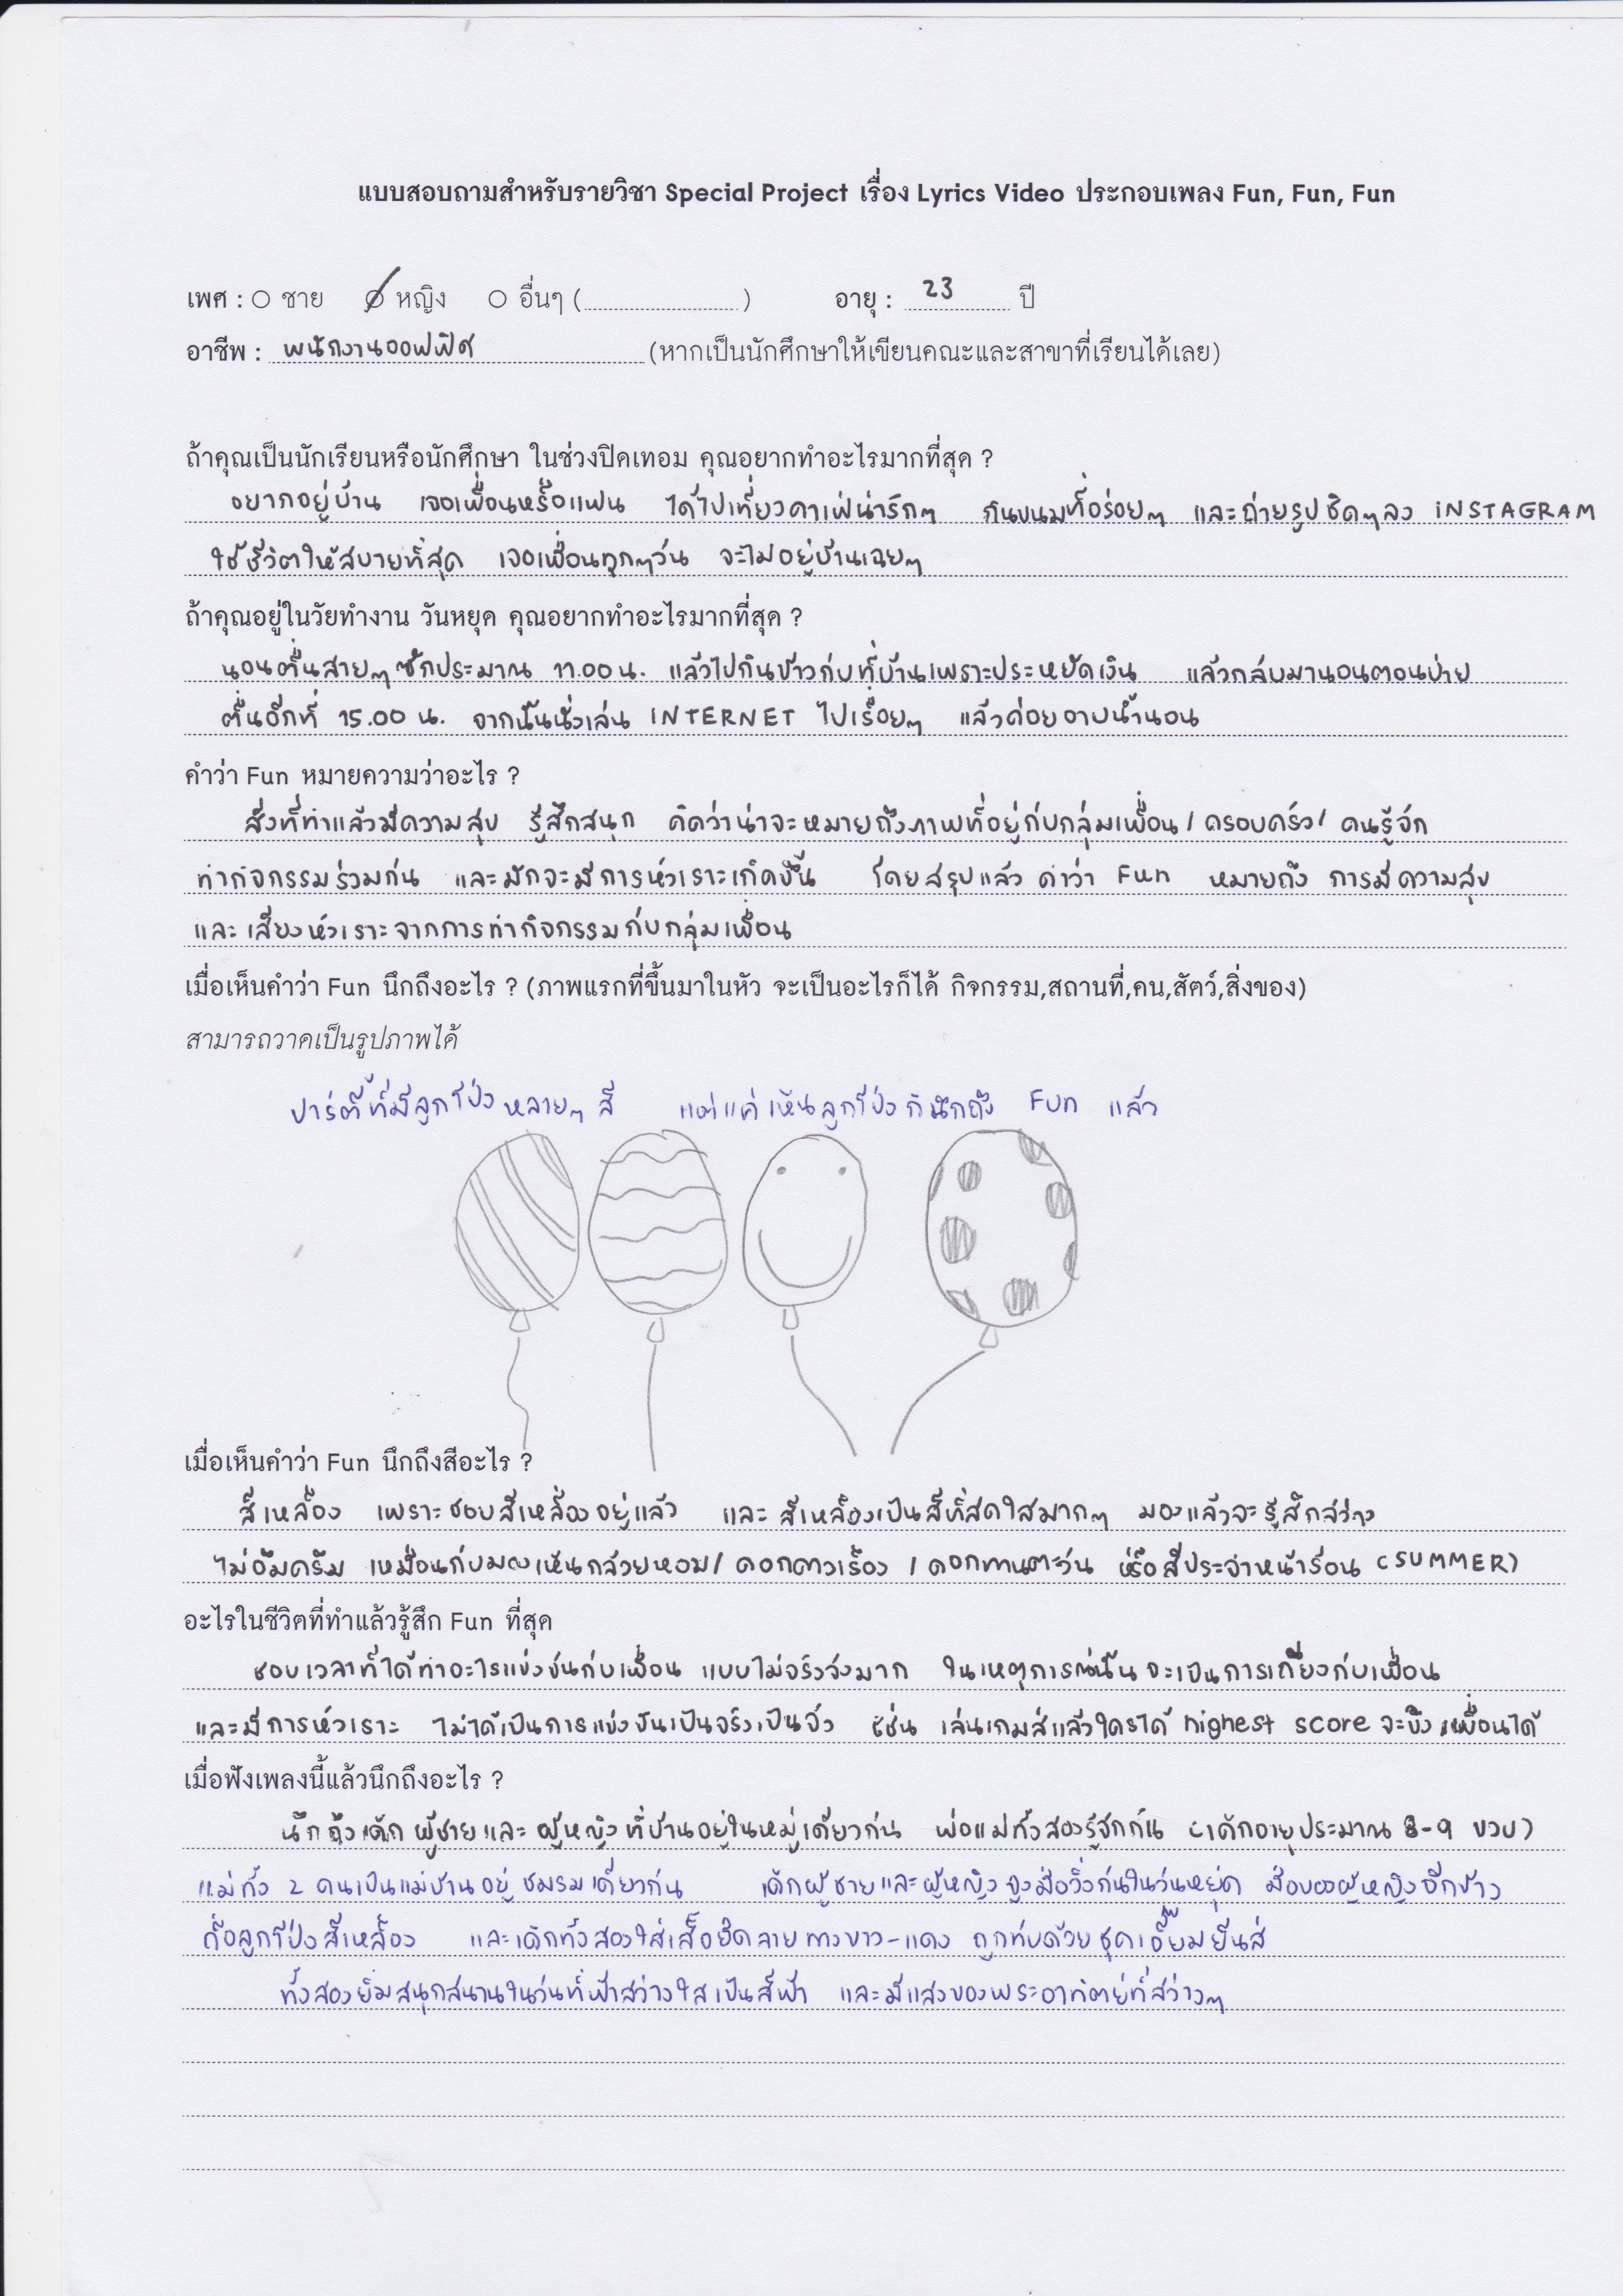 แบบสอบถามสำหรับรายวิชา Special Project เรื่อง Lyrics Video ประกอบเพลง Fun, Fun, Fun
เพศ : ○ ชาย ○ หญิง ○ อื่นๆ (..................) อายุ : 23 ปี
อาชีพ : พนักงานออฟฟิศ (หากเป็นนักศึกษาให้เขียนคณะและสาขาที่เรียนได้เลย)
ถ้าคุณเป็นนักเรียนหรือนักศึกษา ในช่วงปิดเทอม คุณอยากทำอะไรมากที่สุด ?
อยากอยู่บ้าน เจอเพื่อนหรือแฟน ได้ไปเที่ยวคาเฟ่น่ารักๆ กินขนมที่อร่อยๆ และถ่ายรูปชิคๆลง INSTAGRAM
ใช้ชีวิตให้สบายที่สุด เจอเพื่อนทุกๆวัน จะไม่อยู่บ้านเฉยๆ
ถ้าคุณอยู่ในวัยทำงาน วันหยุด คุณอยากทำอะไรมากที่สุด ?
นอนตื่นสายๆ ซักประมาณ 11.00 น. แล้วไปกินข้าวกับที่บ้านเพราะประหยัดเงิน แล้วกลับมานอนตอนบ่าย
ตื่นอีกที่ 15.00 น. จากนั้นนั่งเล่น INTERNET ไปเรื่อยๆ แล้วค่อยอาบน้ำนอน
คำว่า Fun หมายความว่าอะไร ?
สิ่งที่ทำแล้วมีความสุข รู้สึกสนุก คิดว่าน่าจะหมายถึงภาพที่อยู่กับกลุ่มเพื่อน/ครอบครัว/คนรู้จัก
ทำกิจกรรมร่วมกัน และมักจะมีการหัวเราะเกิดขึ้น โดยสรุปแล้ว คำว่า Fun หมายถึง การมีความสุข
และ เสียงหัวเราะจากการทำกิจกรรมกับกลุ่มเพื่อน
เมื่อเห็นคำว่า Fun นึกถึงอะไร ? (ภาพแรกที่ขึ้นมาในหัว จะเป็นอะไรก็ได้ กิจกรรม,สถานที่,คน,สัตว์,สิ่งของ)
สามารถวาดเป็นรูปภาพได้
ปาร์ตี้ที่มีลูกโป่งหลายๆ สี แต่แค่เห็นลูกโป่งก็นึกถึง Fun แล้ว
เมื่อเห็นคำว่า Fun นึกถึงสีอะไร ?
สีเหลือง เพราะชอบสีเหลืองอยู่แล้ว และ สีเหลืองเป็นสีที่สดใสมากๆ มองแล้วจะรู้สึกสว่าง
ไม่อึมครึม เหมือนกับมองเห็นกล้วยหอม/ดอกดาวเรือง/ดอกทานตะวัน หรือสีประจำหน้าร้อน (SUMMER)
อะไรในชีวิตที่ทำแล้วรู้สึก Fun ที่สุด
ชอบเวลาที่ได้ทำอะไรแข่งขันกับเพื่อน แบบไม่จริงจังมาก ในเหตุการณ์นั้น จะเป็นการเถียงกับเพื่อน
และมีการหัวเราะ ไม่ได้เป็นการแข่งขันเป็นจริงเป็นจัง เช่น เล่นเกมส์แล้วใครได้ highest score จะยิงเพื่อนได้
เมื่อฟังเพลงนี้แล้วนึกถึงอะไร ?
นึกถึงเด็กผู้ชายและผู้หญิงที่บ้านอยู่ในหมู่เดียวกัน พ่อแม่ทั้งสองรู้จักกัน (เด็กอายุประมาณ 8-9 ขวบ)
แม่ทั้ง 2 คนเป็นแม่บ้านอยู่ ชมรมเดียวกัน เด็กผู้ชายและผู้หญิงจูงมือวิ่งกันในวันหยุด มือของผู้หญิงอีกข้าง
ถือลูกโป่งสีเหลือง และเด็กทั้งสองใส่เสื้อยืดลายทางขาว-แดง ถูกทับด้วยชุดเอี๊ยมยีนส์
ทั้งสองยิ้มสนุกสนานในวันที่ฟ้าสว่างใสเป็นสีฟ้า และมีแสงของพระอาทิตย์ที่สว่างๆ